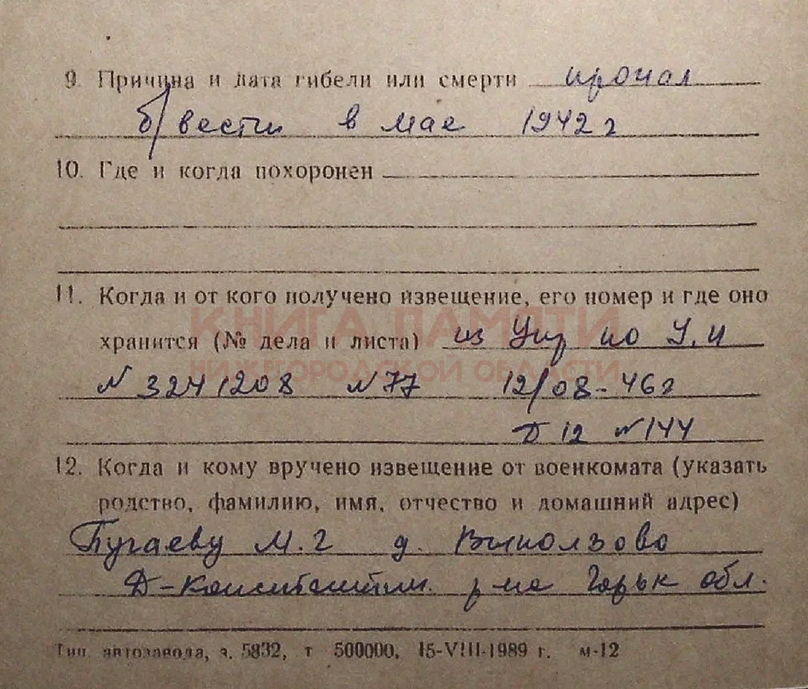 9. Причина и дата гибели или смерти пропал
б/вести в мае 1942 г
10. Где и когда похоронен
11. Когда и от кого получено извещение, его номер и где оно
хранится (№ дела и листа) из Упр по У.и
КНИГА ПАМЯТИ
НИЖЕГОРОДСКОЙ ОБЛАСТИ
N 3241208 N 77 12/08-46г
Д 12 N 144
12. Когда и кому вручено извещение от военкомата (указать
родство, фамилию, имя, отчество и домашний адрес)
Пугаеву М.Г д. Выползово
Д-Константин. р-на Горьк обл.
Тип. автозавода, з. 5832, т 500000, 15-VIII-1989 г. м-12